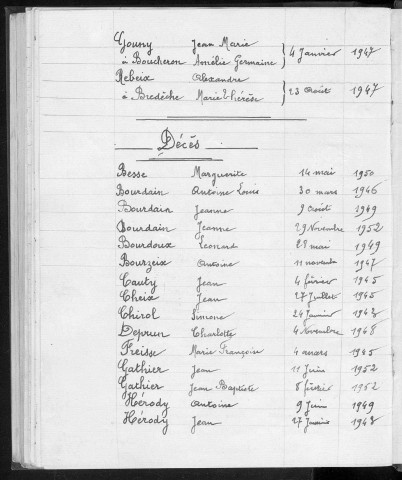 Jean Marie
à Boucheron Amélie Germaine } 4 Janvier 1947
Rebeix Alexandre
à Bredèche Marie Thérèse } 23 Août 1947
Décès
Besse Marguerite 14 mai 1950
Bourdain Antoine Louis 30 mars 1946
Bourdain Jeanne 9 Août 1949
Bourdain Jeanne 29 Novembre 1952
Bourdoux Leonard 28 mai 1949
Bourzeix Antoine 11 novembre 1947
Cauty Jean 4 février 1945
Cheix Jean 27 Juillet 1945
Chirol Simone 24 Janvier 1948
Deprun Charlotte 4 Novembre 1948
Freisse Marie Françoise 4 mars 1945
Gathier Jean 11 Juin 1952
Gathier Jean Baptiste 8 février 1952
Hérody Antoine 9 Juin 1949
Hérody Jean 27 Janvier 1948